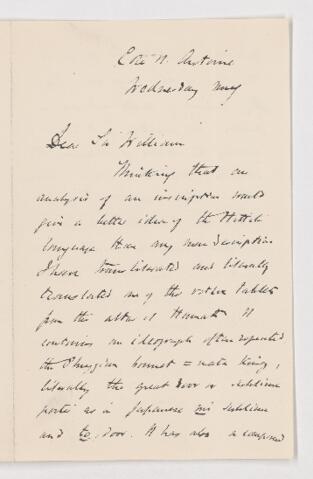 Côte St. Antoine
Wednesday Mng
Dear Sir William
Thinking that an
analysis of an inscription would
give a better idea of the Hittite
language than any mere description
I have transliterated and literally
translated one of the votive tablets
from the altar of Hamath. It
contains an ideograph often repeated
the Phrygian bonnet = mata King,
literally the great door or sublime
porte as in Japanese mi sublime
and to door. It has also a composed